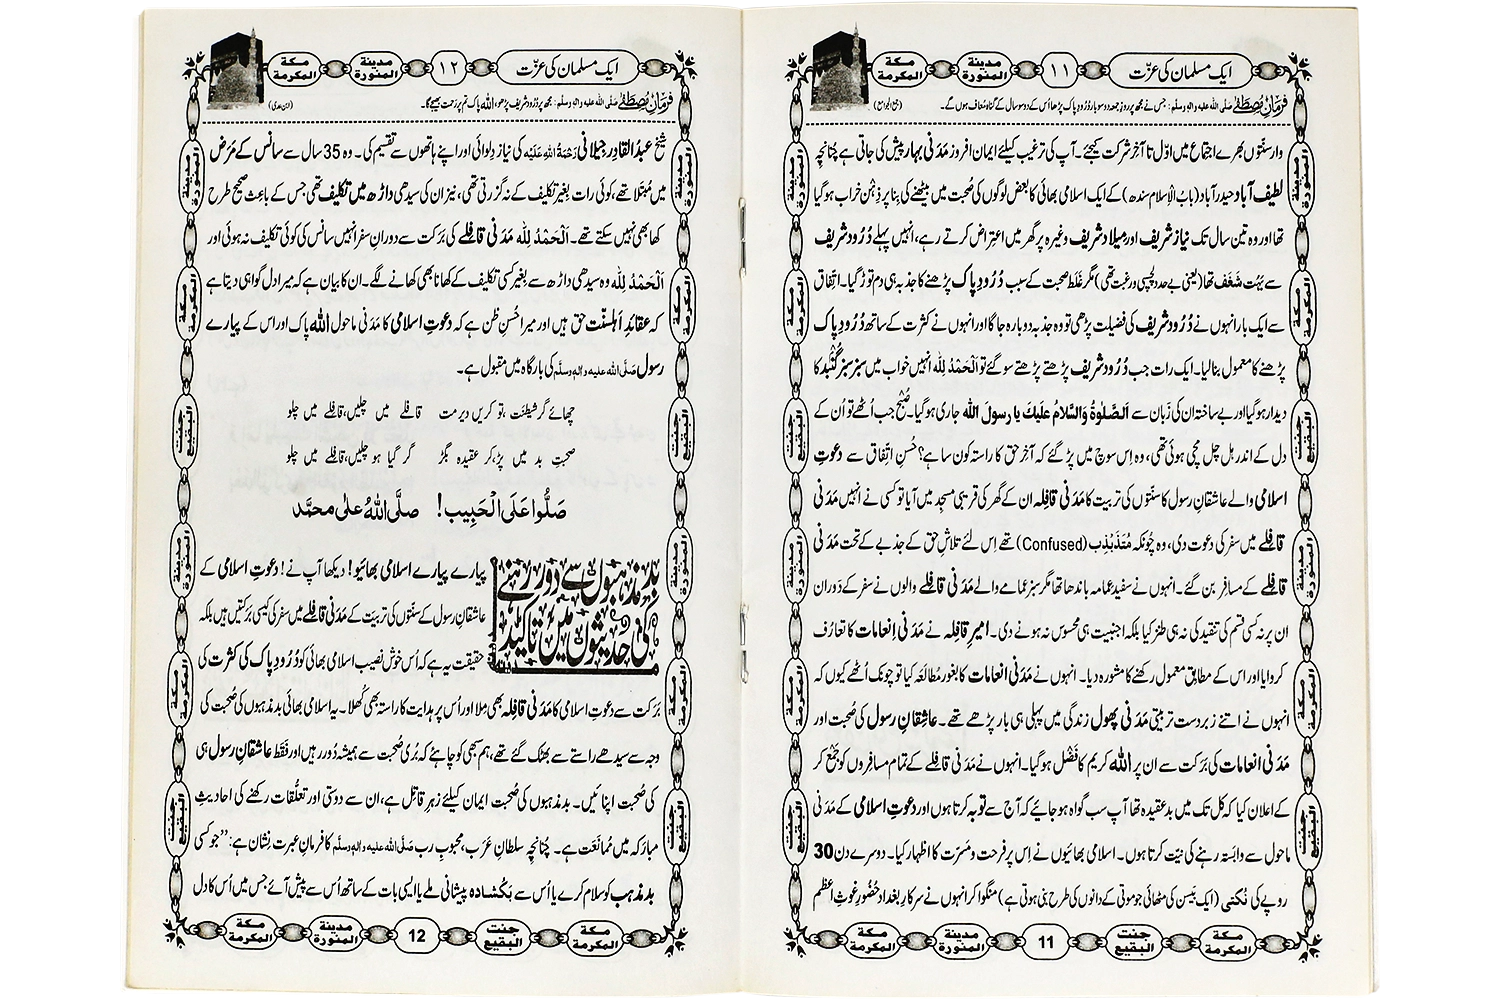 ایک مسلمان کی عزّت
۱۱
مدينة المنورة
مكة المكرمة
فرمانِ مصطَفٰے صلی اللہ علیہ والہ وسلم: جس نے مجھ پر روزِ جمعہ دو سو بار دُرُود پاک پڑھا اُس کے دو سو سال کے گناہ مُعاف ہوں گے۔
وار سنّتوں بھرے اجتماع میں اوّل تا آخر شرکت کیجئے۔ آپ کی ترغیب کیلئے ایمان افروز مَدَنی بہار پیش کی جاتی ہے چُنانچِہ
لطیف آباد حیدر آباد (بابُ الْاِسلام سندھ) کے ایک اسلامی بھائی کا بعض لوگوں کی صُحبت میں بیٹھنے کی بِنا پر ذِہن خراب ہوگیا
تھا اور وہ تین سال تک نیاز شریف اور میلاد شریف وغیرہ پر گھر میں اعتِراض کرتے رہے، انہیں پہلے دُرُود شریف
سے بَہُت شَغَف تھا (یعنی بے حد دلچسپی و رغبت تھی) مگر غَلَط صحبت کے سبب دُرُودِ پاک پڑھنے کا جذبہ ہی دم توڑ گیا۔ اتِّفاق
سے ایک بار انہوں نے دُرُود شریف کی فضیلت پڑھی تو وہ جذبہ دوبارہ جاگا اور انہوں نے کثرت کے ساتھ دُرُودِ پاک
پڑھنے کا معمول بنا لیا۔ ایک رات جب دُرُود شریف پڑھتے پڑھتے سو گئے تو اَلْحَمْدُ لِلّٰہ انہیں خواب میں سبز سبز گُنْبَد کا
دیدار ہوگیا اور بے ساختہ ان کی زَبان سے اَلصَّلٰوةُ وَالسَّلَامُ عَلَیْکَ یا رسولَ اللہ جاری ہوگیا۔ صُبْح جب اُٹھے تو اُن کے
دل کے اندر ہل چل مچی ہوئی تھی، وہ اِس سوچ میں پڑ گئے کہ آخر حق کا راستہ کون سا ہے؟ حُسنِ اتِّفاق سے دعوتِ
اسلامی والے عاشِقانِ رسول کا سنّتوں کی تربیت کا مَدَنی قافِلہ ان کے گھر کی قریبی مسجِد میں آیا تو کسی نے انہیں مَدَنی
قافِلے میں سفر کی دعوت دی، وہ چُونکہ مُتَذَبْذِب (Confused) تھے اِس لئے تلاشِ حق کے جذبے کے تحت مَدَنی
قافِلے کے مسافر بن گئے۔ انہوں نے سفید عمامہ باندھا تھا مگر سبز عمامے والے مَدَنی قافِلے والوں نے سفر کے دَوران
ان پر نہ کسی قسم کی تنقید کی نہ ہی طنز کیا بلکہ اجنبیت ہی محسوس نہ ہونے دی۔ امیرِ قافِلہ نے مَدَنی اِنعامات کا تعارُف
کروایا اور اس کے مطابِق معمول رکھنے کا مشورہ دیا۔ انہوں نے مَدَنی انعامات کا بغور مُطالَعَہ کیا تو چونک اُٹھے کیوں کہ
انہوں نے اتنے زبردست تربیتی مَدَنی پھول زندگی میں پہلی ہی بار پڑھے تھے۔ عاشِقانِ رسول کی صُحبت اور
مَدَنی انعامات کی بَرَکت سے ان پر اللہ کریم کا فَضْل ہوگیا۔ انہوں نے مَدَنی قافِلے کے تمام مسافِروں کو جَمْع کر
کے اعلان کیا کہ کل تک میں بد عقیدہ تھا آپ سب گواہ ہو جائیے کہ آج سے توبہ کرتا ہوں اور دعوتِ اسلامی کے مَدَنی
ماحول سے وابَستہ رہنے کی نیّت کرتا ہوں۔ اسلامی بھائیوں نے اِس پر فرحت و مَسَرّت کا اظہار کیا۔ دوسرے دن 30
روپے کی نُکتی (ایک بَیسن کی مٹھائی جو موتی کے دانوں کی طرح بنی ہوتی ہے) منگوا کر انہوں نے سرکارِ بغداد حُضُورِ غوثِ اعظم
مكة المكرمة
جنت البقيع
11
مدينة المنورة
مكة المكرمة
ایک مسلمان کی عزّت
۱۲
مدينة المنورة
مكة المكرمة
فرمانِ مصطَفٰے صلی اللہ علیہ والہ وسلم: مجھ پر دُرُود شریف پڑھو، اللہ پاک تم پر رَحمت بھیجے گا۔ (ابن عدی)
شیخ عبدُ القادِر جیلانی رَحْمَةُ اللهِ عَلَیْه کی نیاز دِلوائی اور اپنے ہاتھوں سے تقسیم کی۔ وہ 35 سال سے سانس کے مَرَض
میں مُبتَلا تھے، کوئی رات بِغیر تکلیف کے نہ گزرتی تھی، نیز ان کی سیدھی داڑھ میں تکلیف تھی جس کے باعِث صحیح طرح
کھا بھی نہیں سکتے تھے۔ اَلْحَمْدُ لِلّٰہ مَدَنی قافِلے کی بَرَکت سے دورانِ سفر انہیں سانس کی کوئی تکلیف نہ ہوئی اور
اَلْحَمْدُ لِلّٰہ وہ سیدھی داڑھ سے بِغیر کسی تکلیف کے کھانا بھی کھانے لگے۔ ان کا بیان ہے کہ میرا دل گواہی دیتا ہے
کہ عقائدِ اَہلسنّت حق ہیں اور میرا حُسنِ ظن ہے کہ دعوتِ اسلامی کا مَدَنی ماحول اللہ پاک اور اس کے پیارے
رسول صَلَّی اللہ علیہ والہٖ وسلَّم کی بارگاہ میں مقبول ہے۔
چھائے گر شیطنَت، تو کریں دیر مت قافلے میں چلیں، قافلے میں چلو
صحبتِ بد میں پڑ، کر عقیدہ بگڑ گر گیا ہو چلیں، قافِلے میں چلو
صَلُّوا عَلَی الْحَبِیب! صلَّی اللهُ علٰی محمَّد
بد مذہبوں سے دور رہنے کی حدیثوں میں تاکید
پیارے پیارے اسلامی بھائیو! دیکھا آپ نے! دعوتِ اسلامی کے
عاشقانِ رسول کے سنّتوں کی تربیت کے مَدَنی قافِلے میں سفر کی کیسی بَرَکتیں ہیں بلکہ
حقیقت یہ ہے کہ اُس خوش نصیب اسلامی بھائی کو دُرُودِ پاک کی کثرت کی
بَرَکت سے دعوتِ اسلامی کا مَدَنی قافِلہ بھی مِلا اور اُس پر ہدایت کا راستہ بھی کُھلا۔ یہ اسلامی بھائی بدمذہبوں کی صُحبت کی
وجہ سے سیدھے راستے سے بھٹک گئے تھے، ہم سبھی کو چاہئے کہ بُری صُحبت سے ہمیشہ دُور رہیں اور فَقَط عاشقانِ رسول ہی
کی صُحبت اپنائیں۔ بدمذہبوں کی صُحبت ایمان کیلئے زہرِ قاتِل ہے، ان سے دوستی اور تعلُّقات رکھنے کی احادیثِ
مبارَکہ میں مُمانَعت ہے۔ چُنانچِہ سلطانِ عَرَب، محبوبِ رب صلی اللہ علیہ والہ وسلم کا فرمانِ عبرت نِشان ہے: ”جو کسی
بد مذہب کو سلام کرے یا اُس سے بَکُشادہ پیشانی ملے یا ایسی بات کے ساتھ اُس سے پیش آئے جس میں اُس کا دل
مكة المكرمة
جنت البقيع
12
مدينة المنورة
مكة المكرمة